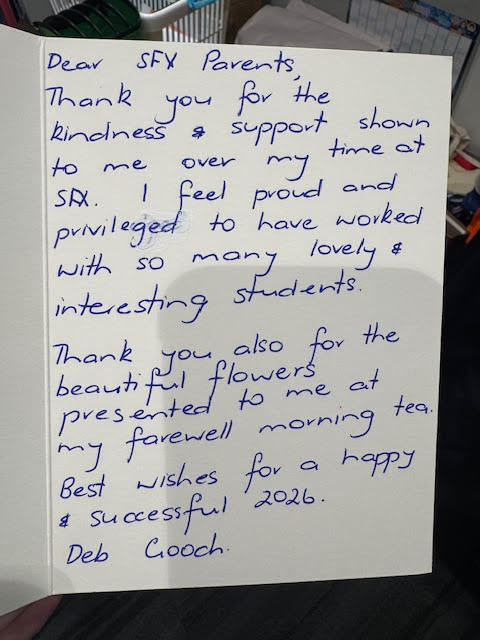 Dear SFX Parents,
Thank you for the
kindness & support shown
to me over my time at
SFX. I feel proud and
privileged to have worked
with so many lovely &
interesting students.
Thank you also for the
beautiful flowers
presented to me at
my farewell morning tea.
Best wishes for a happy
& successful 2026.
Deb Gooch.